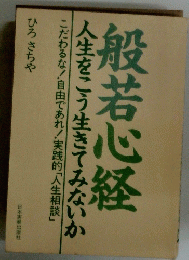 般若心経
人生をこう生きてみないか
こだわるな!自由であれ!実践的「人生相談」
ひろ さちや
日本実業出版社